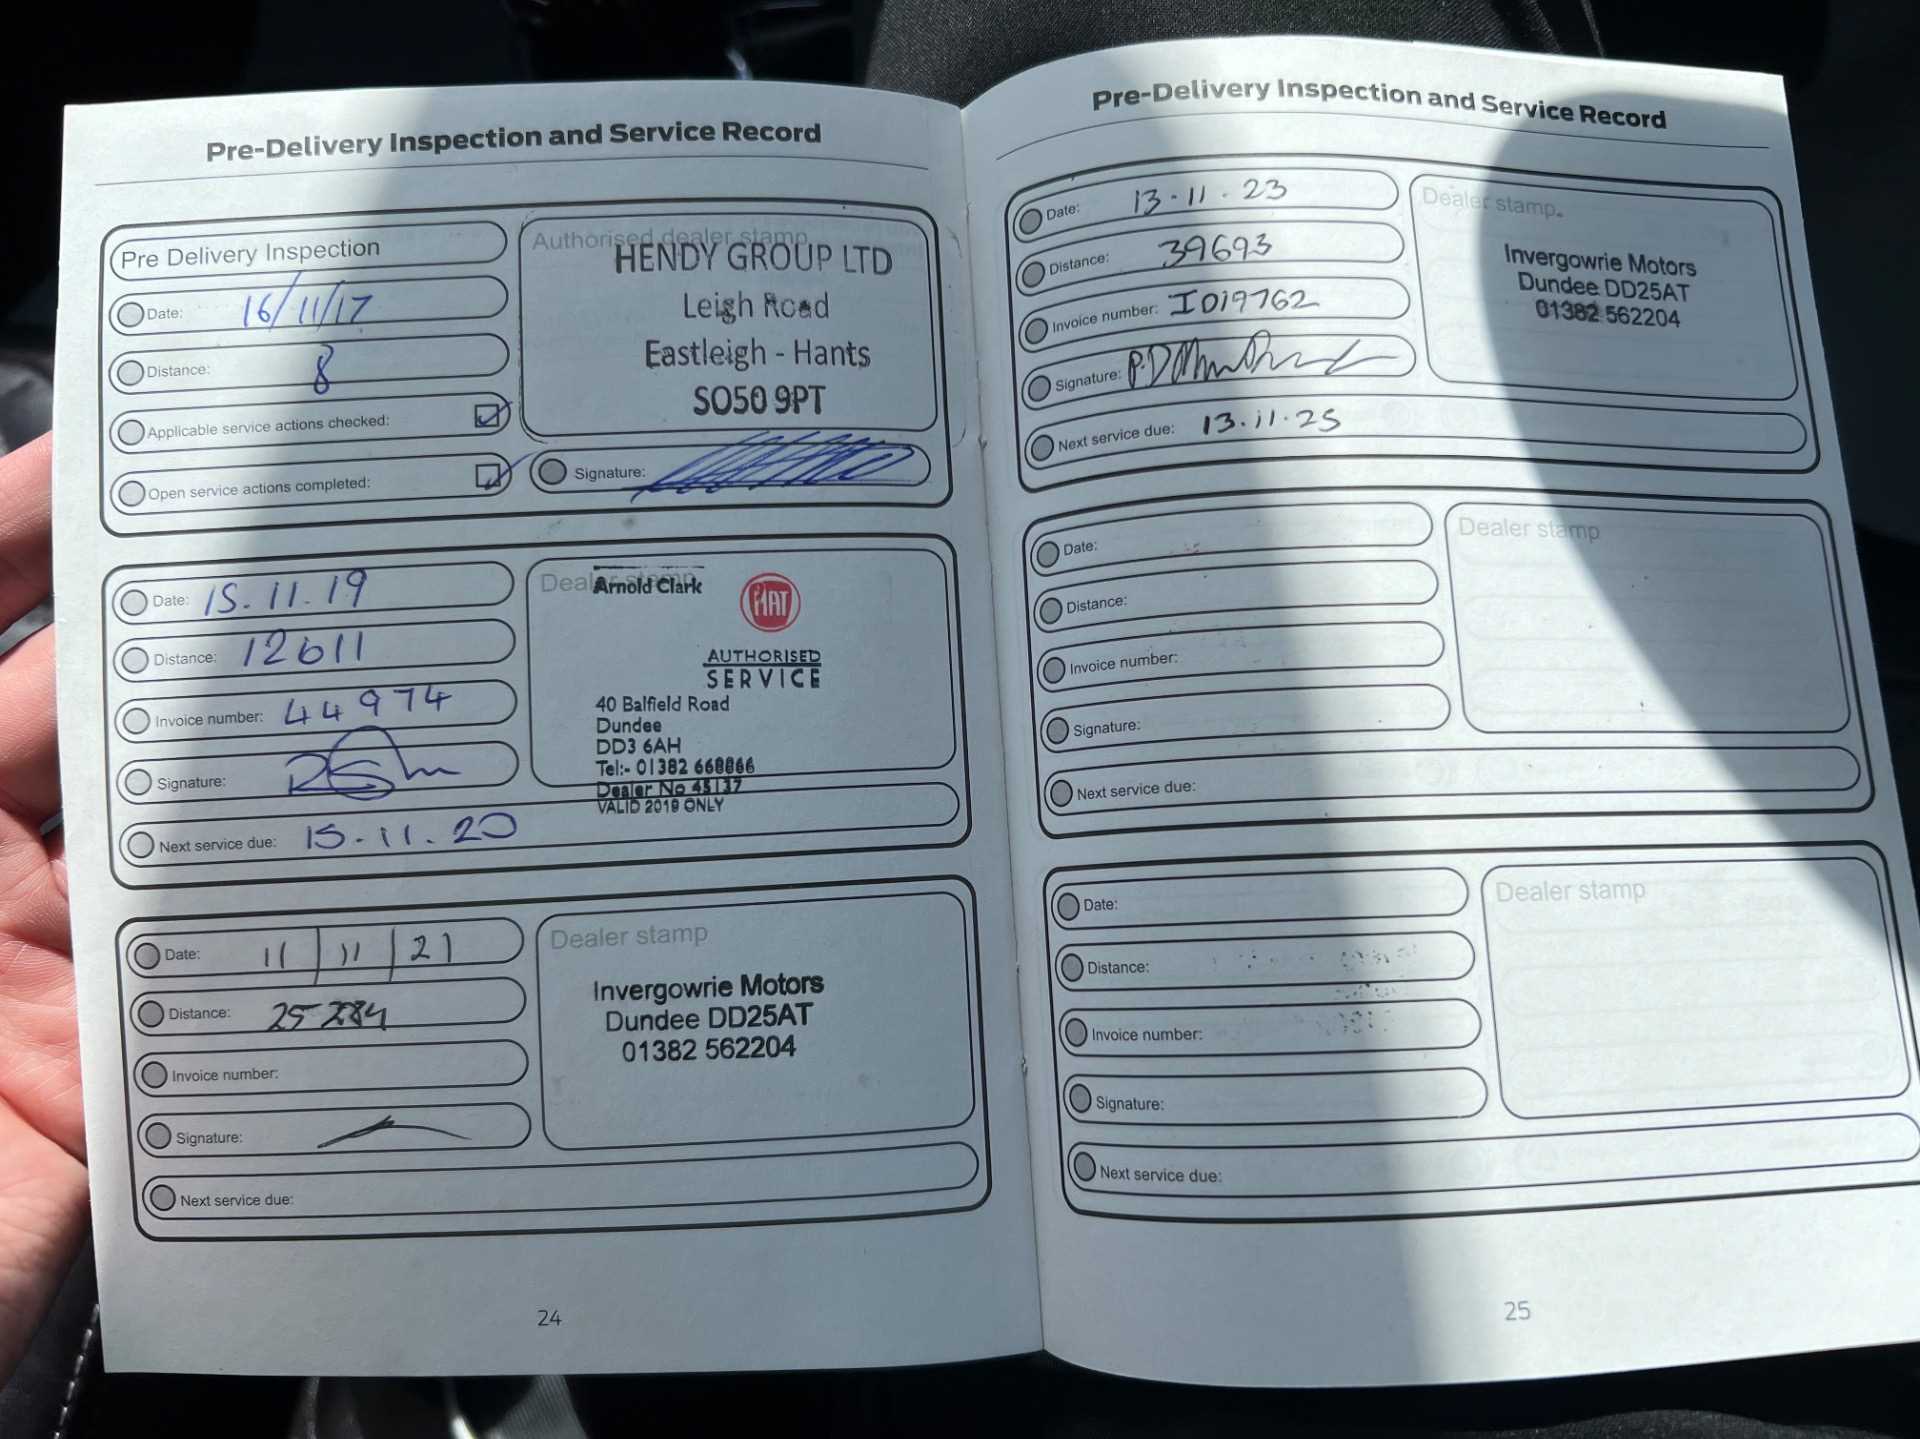 Pre-Delivery Inspection and Service Record
Pre Delivery Inspection
Date: 16/11/17
Distance: 8
Applicable service actions checked:
Open service actions completed:
Authorised dealer stamp
HENDY GROUP LTD
Leigh Road
Eastleigh - Hants
SO50 9PT
Signature:
Date: 15.11.19
Distance: 12611
Invoice number: 44974
Signature:
Next service due: 15.11.20
Dealer stamp
Arnold Clark
FIAT
AUTHORISED
SERVICE
40 Balfield Road
Dundee
DD3 6AH
Tel:- 01382 668866
Dealer No 45137
VALID 2019 ONLY
Date: 11/11/21
Distance: 25284
Invoice number:
Signature:
Next service due:
Dealer stamp
Invergowrie Motors
Dundee DD25AT
01382 562204
24
Pre-Delivery Inspection and Service Record
Date: 13.11.23
Distance: 39693
Invoice number: I019762
Signature:
Next service due: 13.11.25
Dealer stamp
Invergowrie Motors
Dundee DD25AT
01382 562204
Date:
Distance:
Invoice number:
Signature:
Next service due:
Dealer stamp
Date:
Distance:
Invoice number:
Signature:
Next service due:
Dealer stamp
25